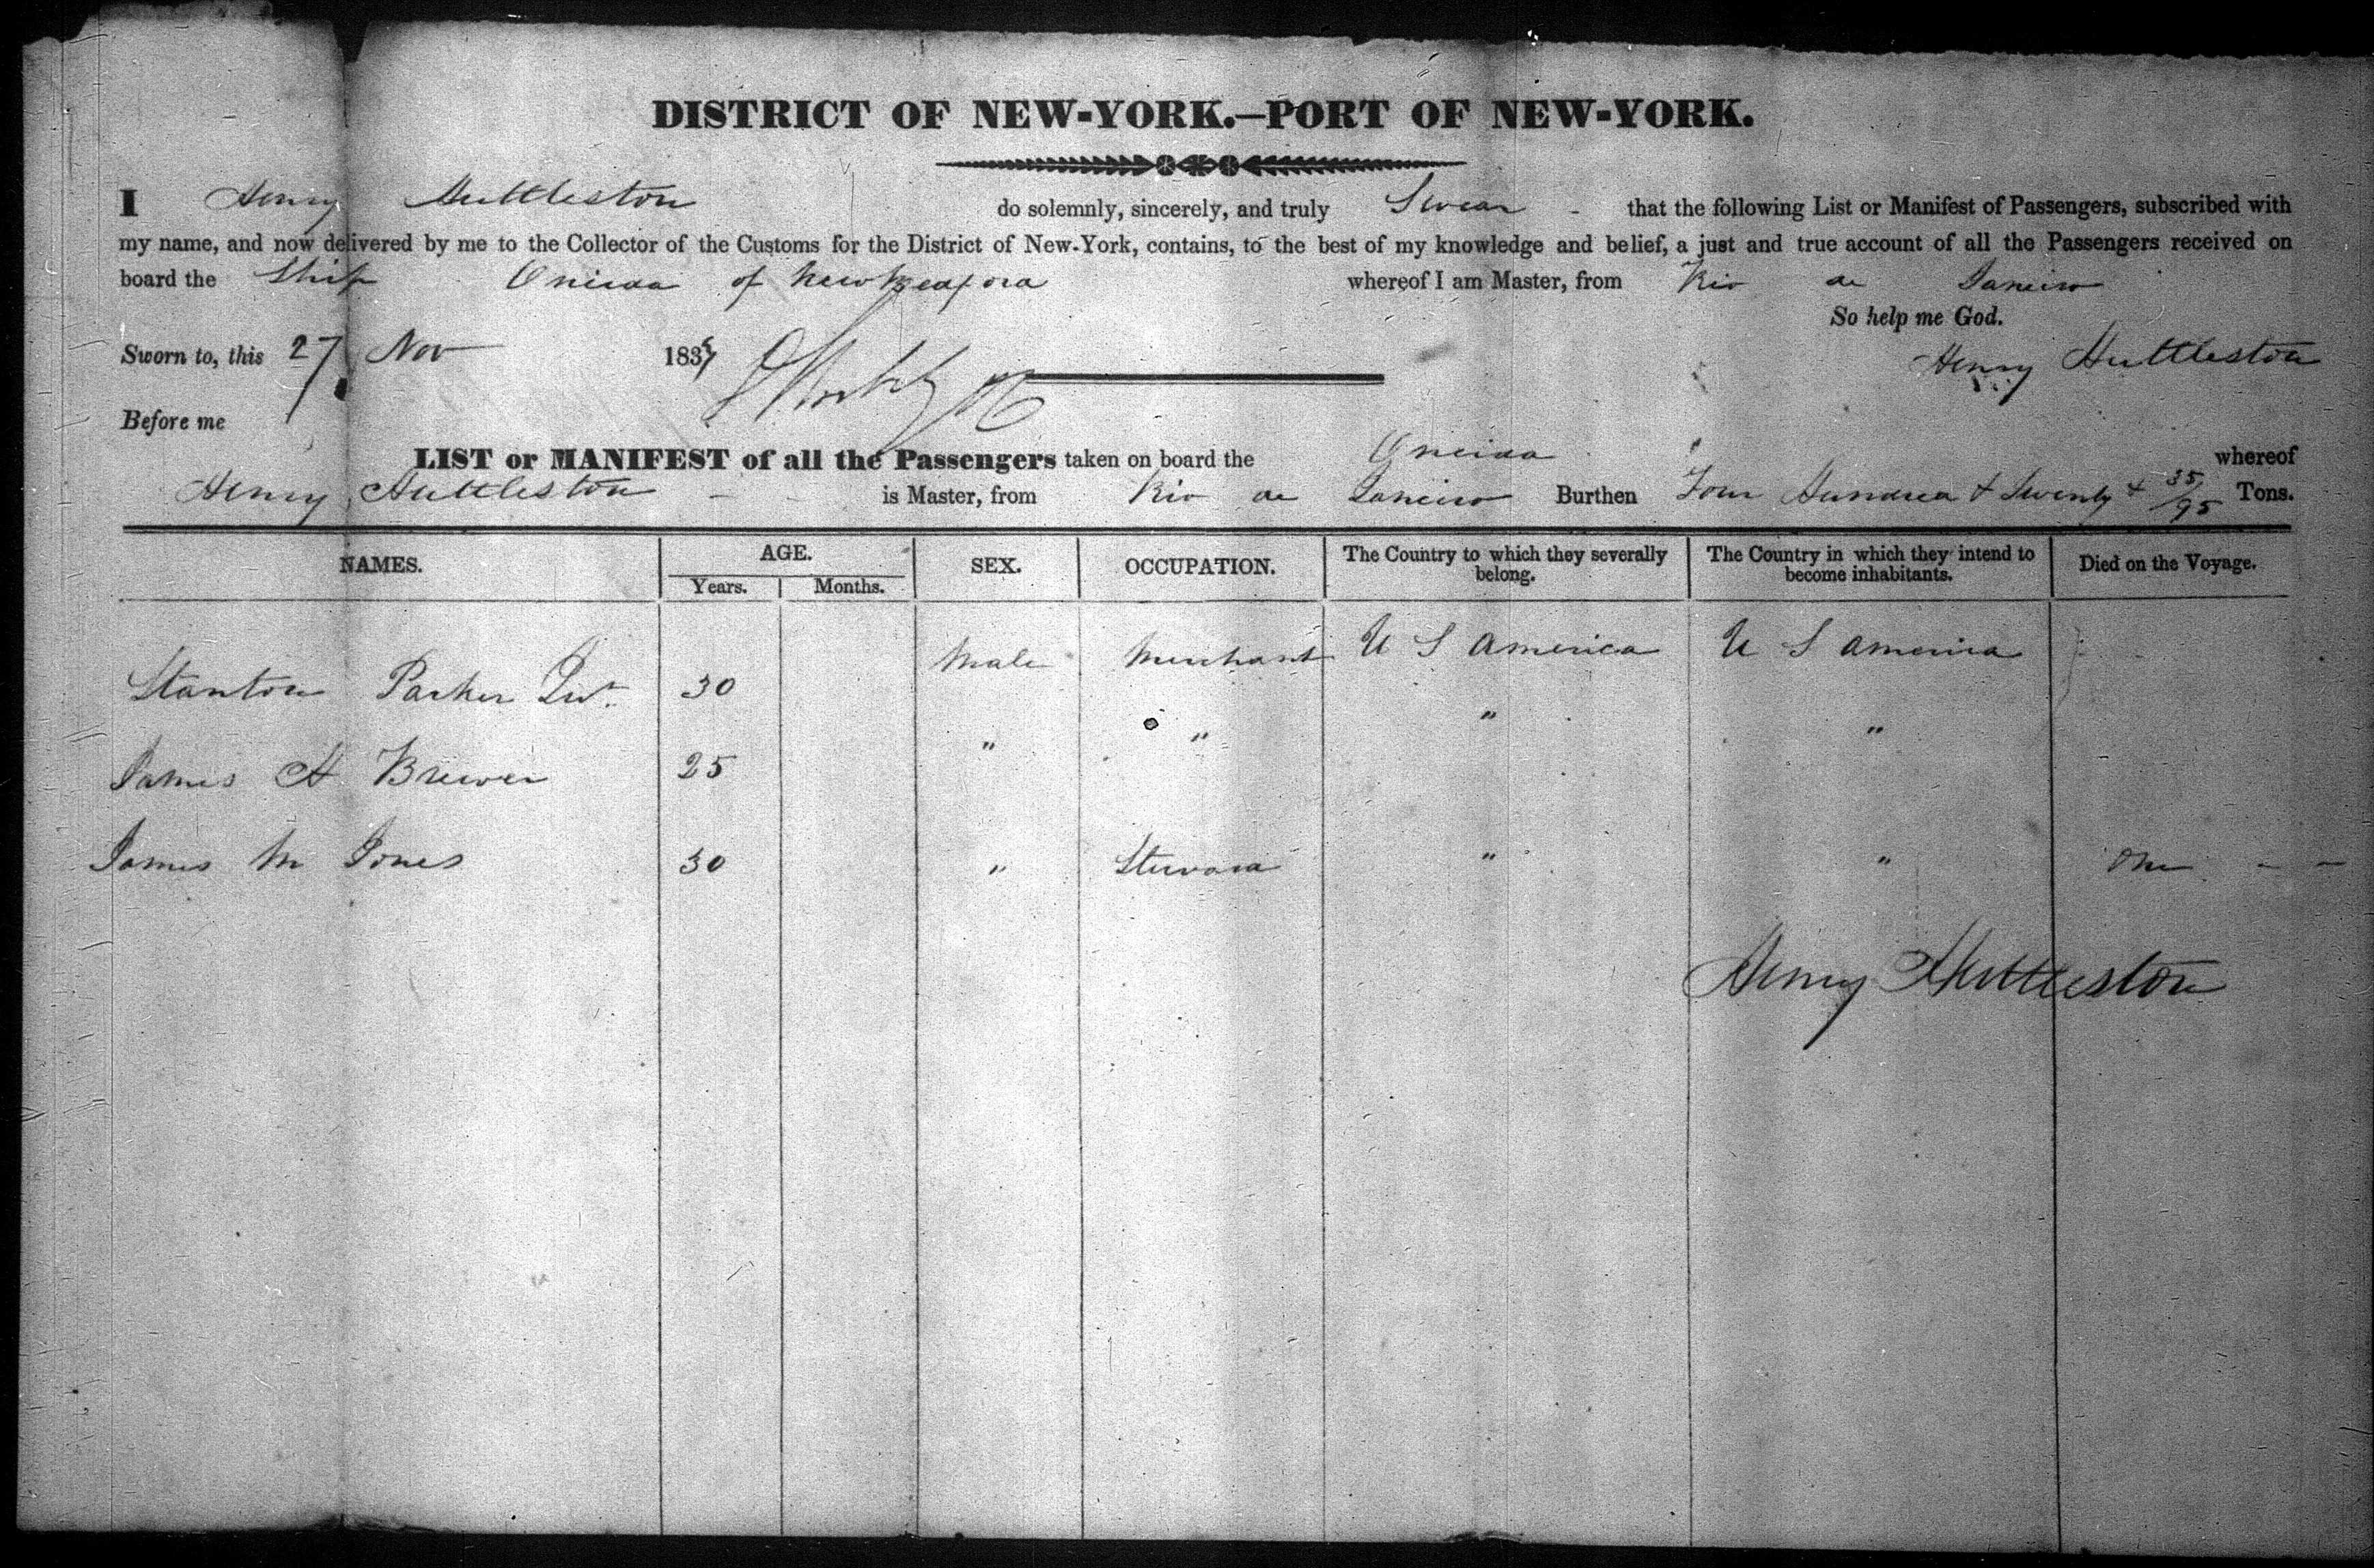 DISTRICT OF NEW-YORK.—PORT OF NEW-YORK.
I Henry Huttleston do solemnly, sincerely, and truly Swear - that the following List or Manifest of Passengers, subscribed with
my name, and now delivered by me to the Collector of the Customs for the District of New-York, contains, to the best of my knowledge and belief, a just and true account of all the Passengers received on
board the Ship Oneida of New Bedford whereof I am Master, from Rio de Janeiro
So help me God.
Sworn to, this 27 Nov 183
Henry Huttleston
Before me
LIST or MANIFEST of all the Passengers taken on board the Oneida whereof
Henry Huttleston - - is Master, from Rio de Janeiro Burthen Four Hundred & Twenty & 35/95 Tons.
NAMES. AGE. SEX. OCCUPATION. The Country to which they severally belong. The Country in which they intend to become inhabitants. Died on the Voyage.
Years. Months.
Stanton Parker 30 Male Merchant U S America U S America
James H Brewer 25 " " " "
James M Jones 30 " Steward " " One - -
Henry Huttleston